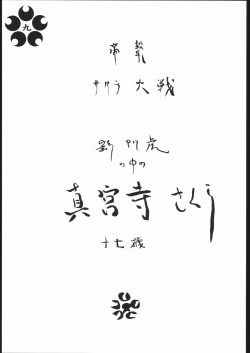 九
帝撃
サクラ大戦
の中の
真宮寺さくら
十七歳